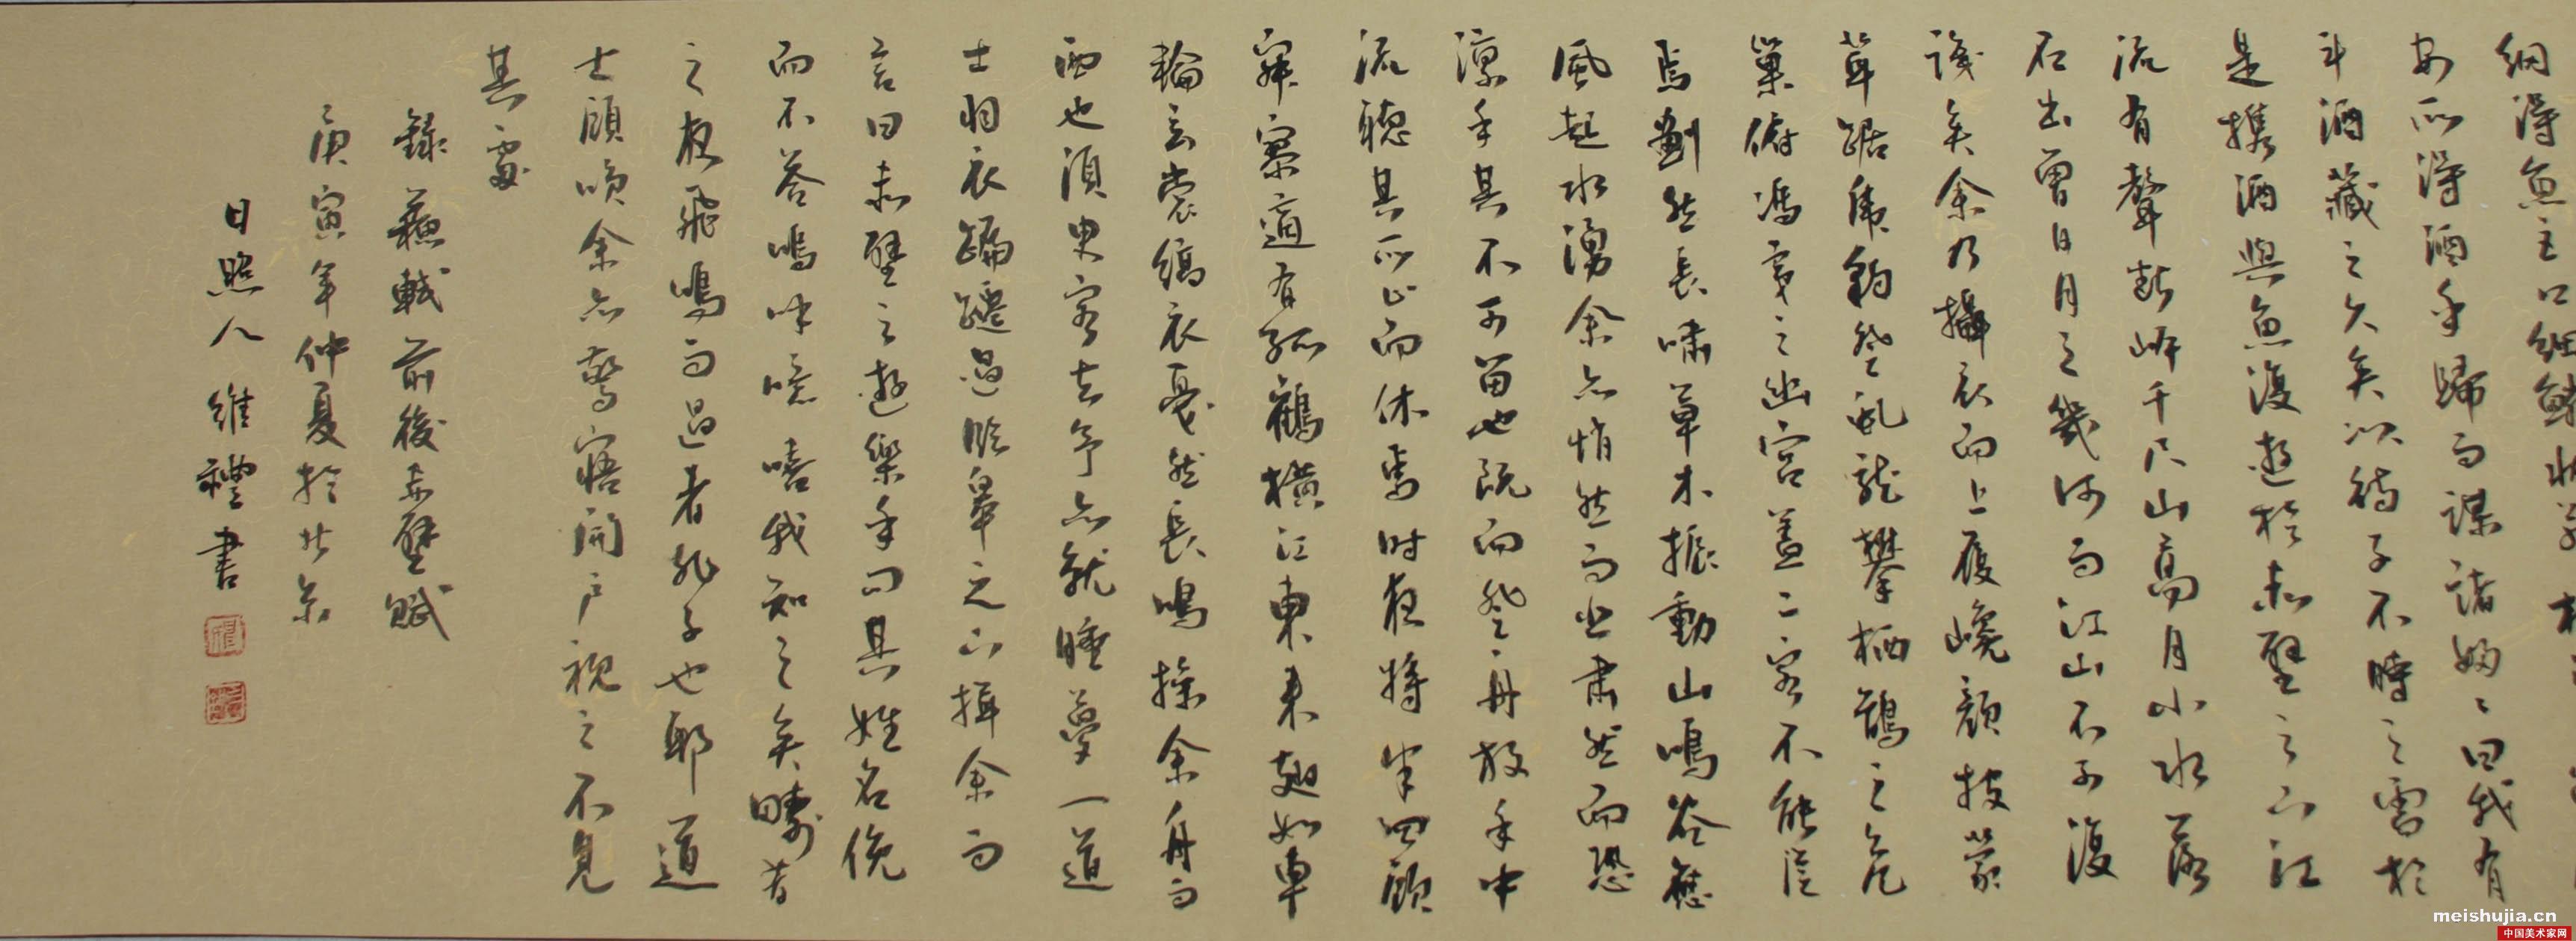 網得魚巨口細鱗狀
安所得酒乎歸而謀諸婦〻曰我有
斗酒藏之久矣以待子不時之需於
是攜酒與魚復遊於赤壁之下江
流有聲斷岸千尺山高月小水落
石出曾日月之幾何而江山不可復
識矣余乃攝衣而上履巉巖披蒙
茸踞虎豹登虬龍攀栖鶻之危
巢俯馮夷之幽宮蓋二客不能從
焉劃然長嘯草木振動山鳴谷應
風起水湧余亦悄然而悲肅然而恐
凜乎其不可留也既而登舟放乎中
流聽其所止而休焉時夜將半四顧
寂寥適有孤鶴橫江東來翅如車
輪玄裳縞衣戛然長鳴掠余舟而
西也須臾客去予亦就睡夢一道
士羽衣蹁躚過臨皋之下揖余而
言曰赤壁之遊樂乎問其姓名俛
而不答嗚呼噫嘻我知之矣疇昔
之夜飛鳴而過者非子也耶道
士顧笑余亦驚寤開戶視之不見
其處
錄蘇軾前後赤壁賦
庚寅年仲夏於北京
日照人維禮書
meishujia.cn
中国美术家网